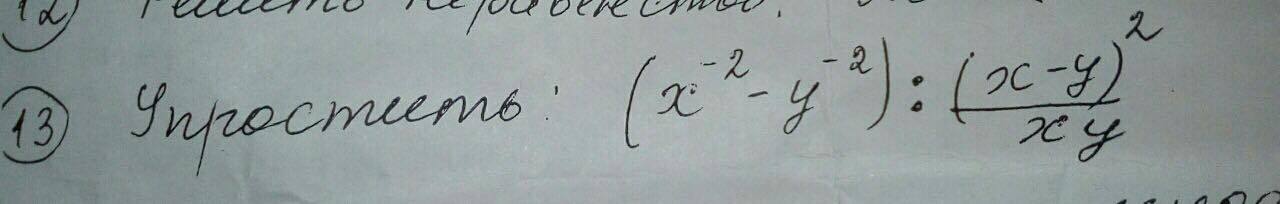 12) Решить неравенство:
13) Упростить: (x⁻² - y⁻²) : (x - y)² / xy